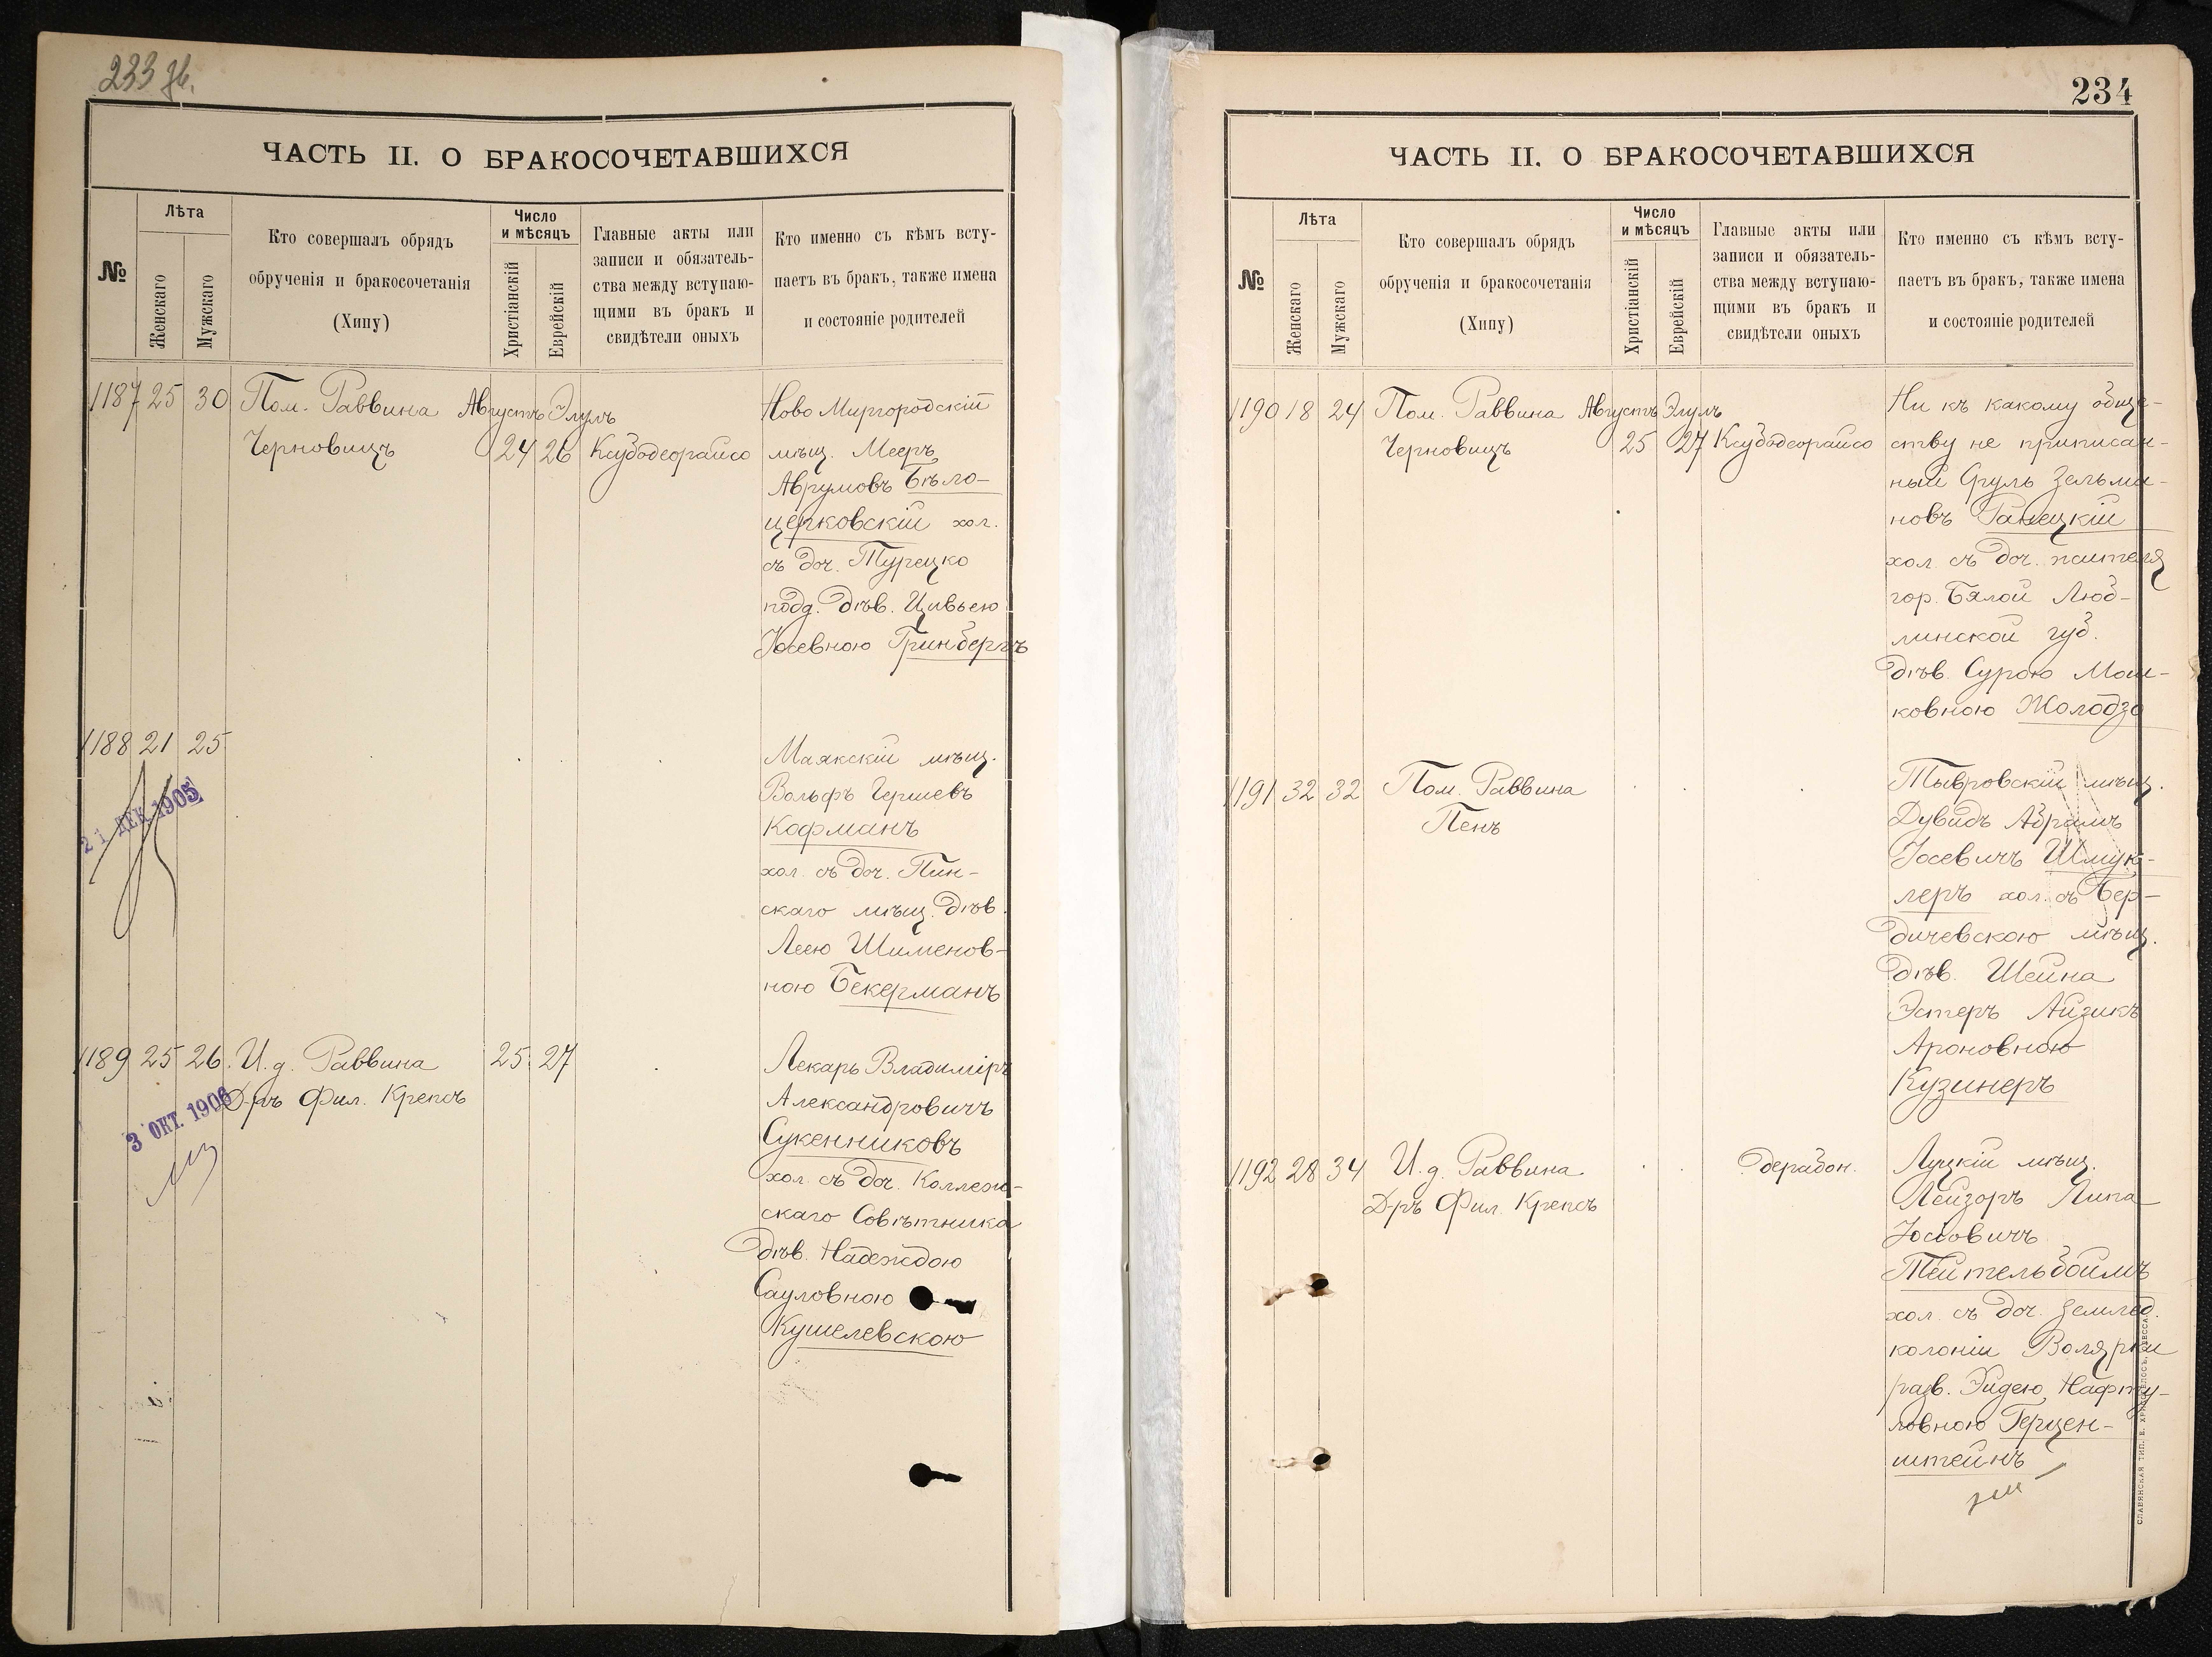 233 зв.
ЧАСТЬ II. О БРАКОСОЧЕТАВШИХСЯ
№
Лѣта
Женскаго
Мужскаго
Кто совершалъ обрядъ
обрученія и бракосочетанія
(Хипу)
Число
и мѣсяцъ
Христіанскій
Еврейскій
Главные акты или
записи и обязатель-
ства между вступаю-
щими въ бракъ и
свидѣтели оныхъ
Кто именно съ кѣмъ всту-
паетъ въ бракъ, также имена
и состояніе родителей
1187 25 30 Пом. Раввина Августъ Элулъ
Черновицъ 24 26 Ксубодеорайсо
Ново Миргородскій
мѣщ. Мееръ
Аврумовъ Бѣло-
церковскій хол.
съ доч. Турецко
подд. дѣв. Цивьею
Юсевною Гринбергъ
1188 21 25
21 ДЕК. 1905
Маякскій мѣщ.
Вольфъ Гершевъ
Кофманъ
хол. съ доч. Пин-
скаго мѣщ. дѣв.
Леею Шименов-
ною Бекерманъ
1189 25 26 И. д. Раввина 25 27
Д-ръ Фил. Крепсъ
3 ОКТ. 1906
Лекарь Владиміръ
Александровичъ
Сукенниковъ
хол. съ доч. Коллеж-
скаго Совѣтника
дѣв. Надеждою
Сауловною
Кушелевскою
234
ЧАСТЬ II. О БРАКОСОЧЕТАВШИХСЯ
№
Лѣта
Женскаго
Мужскаго
Кто совершалъ обрядъ
обрученія и бракосочетанія
(Хипу)
Число
и мѣсяцъ
Христіанскій
Еврейскій
Главные акты или
записи и обязатель-
ства между вступаю-
щими въ бракъ и
свидѣтели оныхъ
Кто именно съ кѣмъ всту-
паетъ въ бракъ, также имена
и состояніе родителей
1190 18 24 Пом. Раввина Августъ Элулъ
Черновицъ 25 27 Ксубодеорайсо
Ни къ какому обще-
ству не приписан-
ный Сруль Зельма-
новъ Ганецкій
хол. съ доч. жителя
гор. Бялой Люб-
линской губ.
дѣв. Сурою Мош-
ковною Жолодзо
1191 32 32 Пом. Раввина
Пенъ
Тывровскій мѣщ.
Дувидъ Абрамъ
Іосевичъ Шмук-
леръ хол. съ Бер-
дичевскою мѣщ.
дѣв. Шейна
Эстеръ Айзикъ
Ароновною
Кузинеръ
1192 28 34 И. д. Раввина дерабон.
Д-ръ Фил. Крепсъ
Луцкій мѣщ.
Лейзоръ Липа
Іосіовичъ
Тейтельбоймъ
хол. съ доч. землед.
колоніи Волярки
разв. Эйдею Нафту-
ловною Герцен-
штейнъ
СЛАВЯНСКАЯ ТИП. Е. ХРИСОГЕЛОСЪ, ОДЕССА.